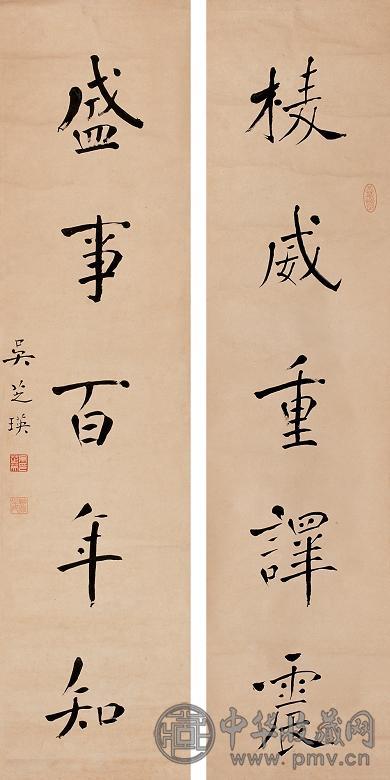 棱威重譯震
盛事百年知
吳芝瑛
中华收藏网
www.pmv.cn